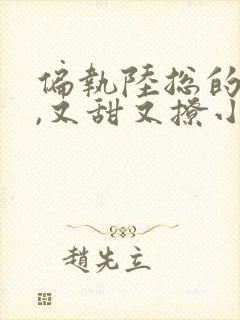 偏執陸總的
,又甜又撩小
趙先立